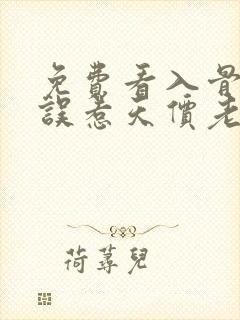 免費看入骨
誤惹天價老
荷蕁兒